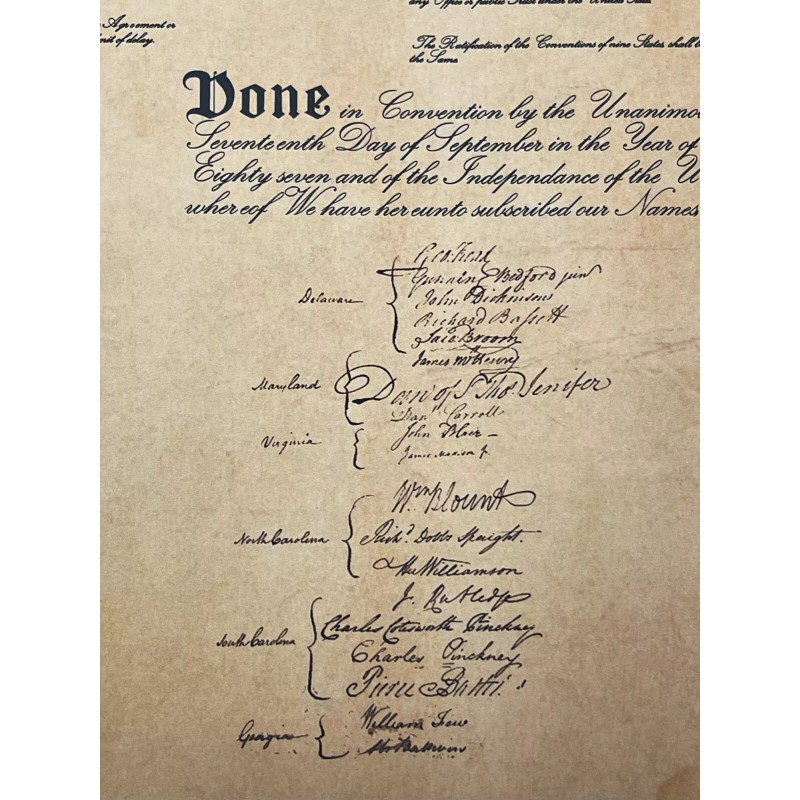 Agreement or
of delay.
any Office or public Trust under the United States.
The Ratification of the Conventions of nine States shall b
the Same.
Done in Convention by the Unanimo
Seventeenth Day of September in the Year of
Eighty seven and of the Independance of the U
whereof We have hereunto subscribed our Names
Delaware
Geo: Read
Gunning Bedford jun
John Dickinson
Richard Bassett
Jaco: Broom
Maryland
James McHenry
Dan of St Thos Jenifer
Danl Carroll
Virginia
John Blair -
James Madison Jr
North Carolina
Wm Blount
Richd. Dobbs Spaight.
Hu Williamson
South Carolina
J. Rutledge
Charles Cotesworth Pinckney
Charles Pinckney
Pierce Butler.
Georgia
William Few
Abr Baldwin